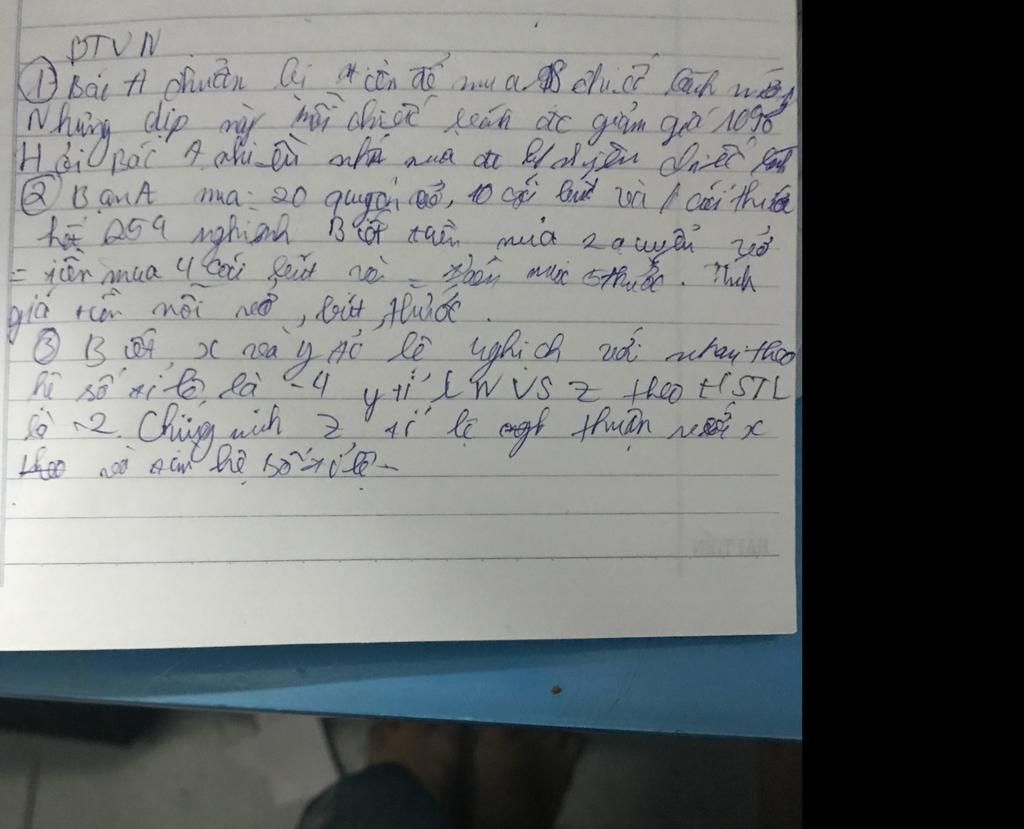 BTVN
① Bác A chuẩn bị tiền để mua chiếc bánh
Nhưng dịp này mỗi chiếc bánh đc giảm giá 10%
Hỏi Bác A nhiều mua đc chiếc
② Bạn A mua 20 quyển vở, 10 cái bút và 1 cái thước
hết 259 nghình Biết tiền mua 2 quyển vở
= tiền mua 4 cái bút và = tiền mua 5 thước. Tính
giá tiền mỗi vở, bút, thước.
③ Biết x và y tỉ lệ nghịch với nhau theo
hệ số tỉ lệ là -4 y tỉ LN VS z theo HSTL
là -2. Chứng minh z tỉ lệ thuận với x
và tìm hệ số tỉ lệ
HẢI TIẾN